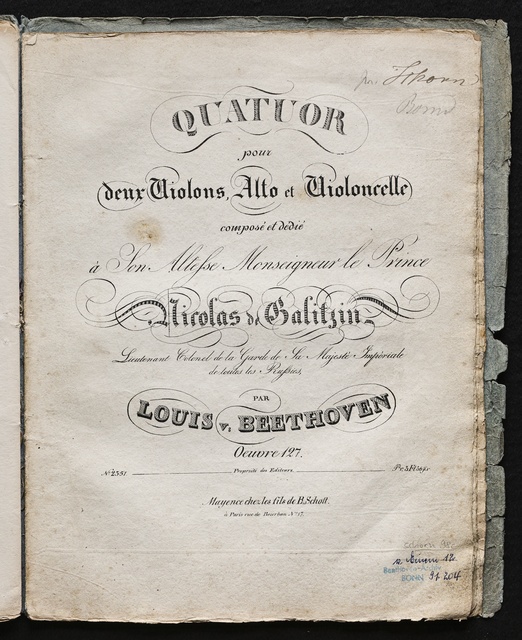 QUATUOR
pour
deux Violons, Alto et Violoncelle
composé et dedié
à Son Altesse Monseigneur le Prince
Nicolas de Galitzin
Lieutenant Colonel de la Garde de Sa Majesté Impériale
de toutes les Russies,
PAR
LOUIS v. BEETHOVEN
Oeuvre 127.
No. 2351. Propriété des Editeurs.
Mayence chez les fils de B. Schott.
à Paris rue de Bourbon No. 17.
Beethoven-Archiv
BONN